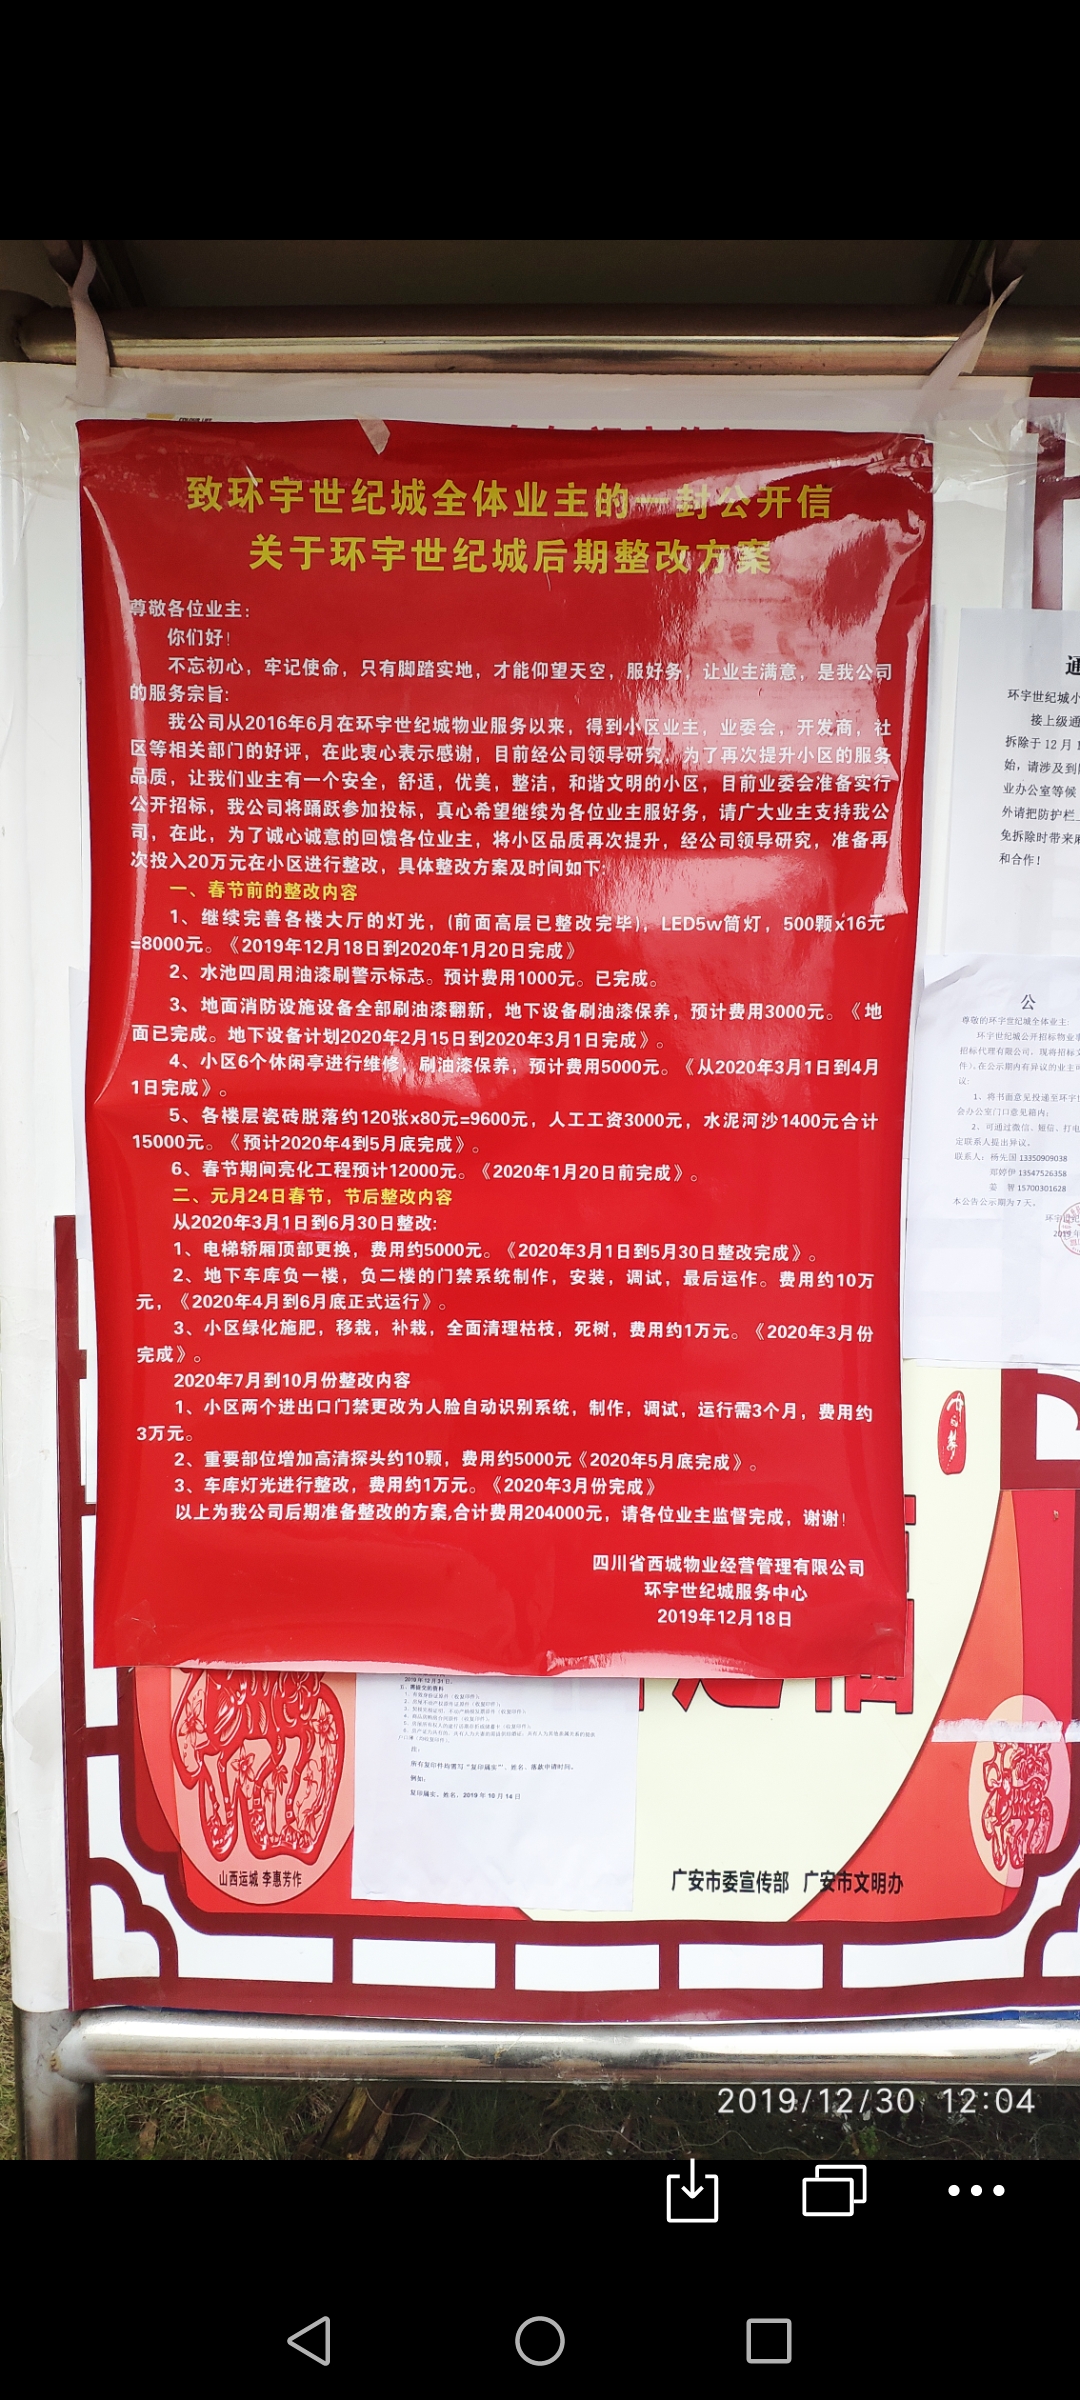 致环宇世纪城全体业主的一封公开信
关于环宇世纪城后期整改方案
尊敬各位业主：
你们好！
不忘初心，牢记使命，只有脚踏实地，才能仰望天空，服好务，让业主满意，是我公司
的服务宗旨：
我公司从2016年6月在环宇世纪城物业服务以来，得到小区业主，业委会，开发商，社
区等相关部门的好评，在此衷心表示感谢，目前经公司领导研究，为了再次提升小区的服务
品质，让我们业主有一个安全，舒适，优美，整洁，和谐文明的小区，目前业委会准备实行
公开招标，我公司将踊跃参加投标，真心希望继续为各位业主服好务，请广大业主支持我公
司，在此，为了诚心诚意的回馈各位业主，将小区品质再次提升，经公司领导研究，准备再
次投入20万元在小区进行整改，具体整改方案及时间如下：
一、春节前的整改内容
1、继续完善各楼大厅的灯光，(前面高层已整改完毕)，LED5w筒灯，500颗x16元
=8000元。《2019年12月18日到2020年1月20日完成》
2、水池四周用油漆刷警示标志。预计费用1000元。已完成。
3、地面消防设施设备全部刷油漆翻新，地下设备刷油漆保养，预计费用3000元。《地
面已完成。地下设备计划2020年2月15日到2020年3月1日完成》。
4、小区6个休闲亭进行维修，刷油漆保养，预计费用5000元。《从2020年3月1日到4月
1日完成》。
5、各楼层瓷砖脱落约120张x80元=9600元，人工工资3000元，水泥河沙1400元合计
15000元。《预计2020年4到5月底完成》。
6、春节期间亮化工程预计12000元。《2020年1月20日前完成》。
二、元月24日春节，节后整改内容
从2020年3月1日到6月30日整改：
1、电梯轿厢顶部更换，费用约5000元。《2020年3月1日到5月30日整改完成》。
2、地下车库负一楼，负二楼的门禁系统制作，安装，调试，最后运作。费用约10万
元，《2020年4月到6月底正式运行》。
3、小区绿化施肥，移栽，补栽，全面清理枯枝，死树，费用约1万元。《2020年3月份
完成》。
2020年7月到10月份整改内容
1、小区两个进出口门禁更改为人脸自动识别系统，制作，调试，运行需3个月，费用约
3万元。
2、重要部位增加高清探头约10颗，费用约5000元《2020年5月底完成》。
3、车库灯光进行整改，费用约1万元。《2020年3月份完成》
以上为我公司后期准备整改的方案,合计费用204000元，请各位业主监督完成，谢谢！
四川省西城物业经营管理有限公司
环宇世纪城服务中心
2019年12月18日
通
环宇世纪城小
接上级通
拆除于12月1
始，请涉及到
业办公室等候
外请把防护栏
免拆除时带来麻
和合作！
公
尊敬的环宇世纪城全体业主：
环宇世纪城公开招标物业事
招标代理有限公司，现将招标文
件），在公示期内有异议的业主可
议：
1、将书面意见投递至环宇世
会办公室门口意见箱内；
2、可通过微信、短信、打电
定联系人提出异议。
联系人：杨先国 13350909038
郑婷伊 13547526358
姜 智 15700301628
本公告公示期为7天。
环宇世纪
2019年
中国梦
2019年12月31日。
注：
所有复印件均需写“复印属实”、姓名、落款申请时间。
例如：
复印属实，姓名，2019年10月14日
山西运城 李惠芳作
广安市委宣传部 广安市文明办
2019/12/30 12:04